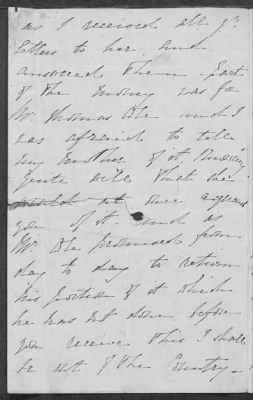 as I received all yr
letters to her and
answered them. Part
of the money was for
Mr Thomas and I
was afraid to tell
my mother of it knowing
quite well that she
at once
you of it and as
Mr promised from
day to day to return
his portion of it which
he has not done before
you receive this I shall
be out of the Country_